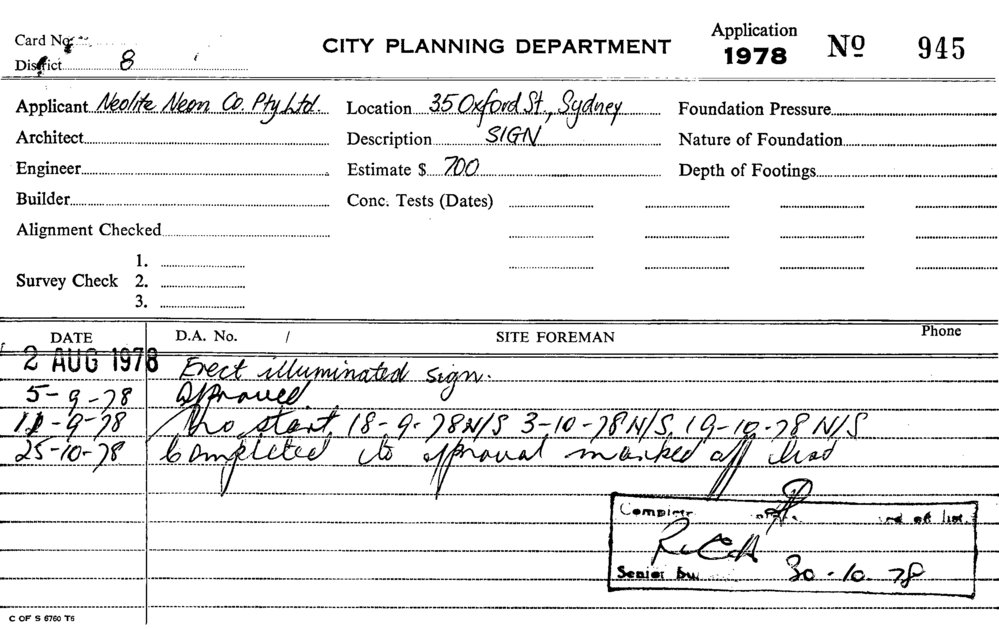 Card No.
CITY PLANNING DEPARTMENT
Application 1978 Nº 945
District 8
Applicant Neolite Neon Co. Pty Ltd. Location 35 Oxford St., Sydney Foundation Pressure
Architect Description SIGN Nature of Foundation
Engineer Estimate $ 700 Depth of Footings
Builder Conc. Tests (Dates)
Alignment Checked
1.
Survey Check 2.
3.
DATE D.A. No. / SITE FOREMAN Phone
2 AUG 1978 Erect illuminated sign.
5-9-78 Approved
11-9-78 No start. 18-9-78 N/S 3-10-78 N/S. 19-10-78 N/S
25-10-78 Completed to approval marked off
off list.
Senior
30-10-78
C OF S 6760 T5